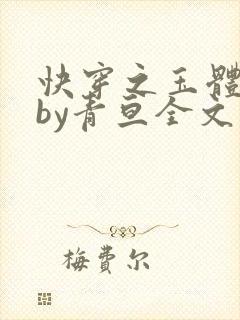 快穿之玉體
by青亘全文
梅費尔